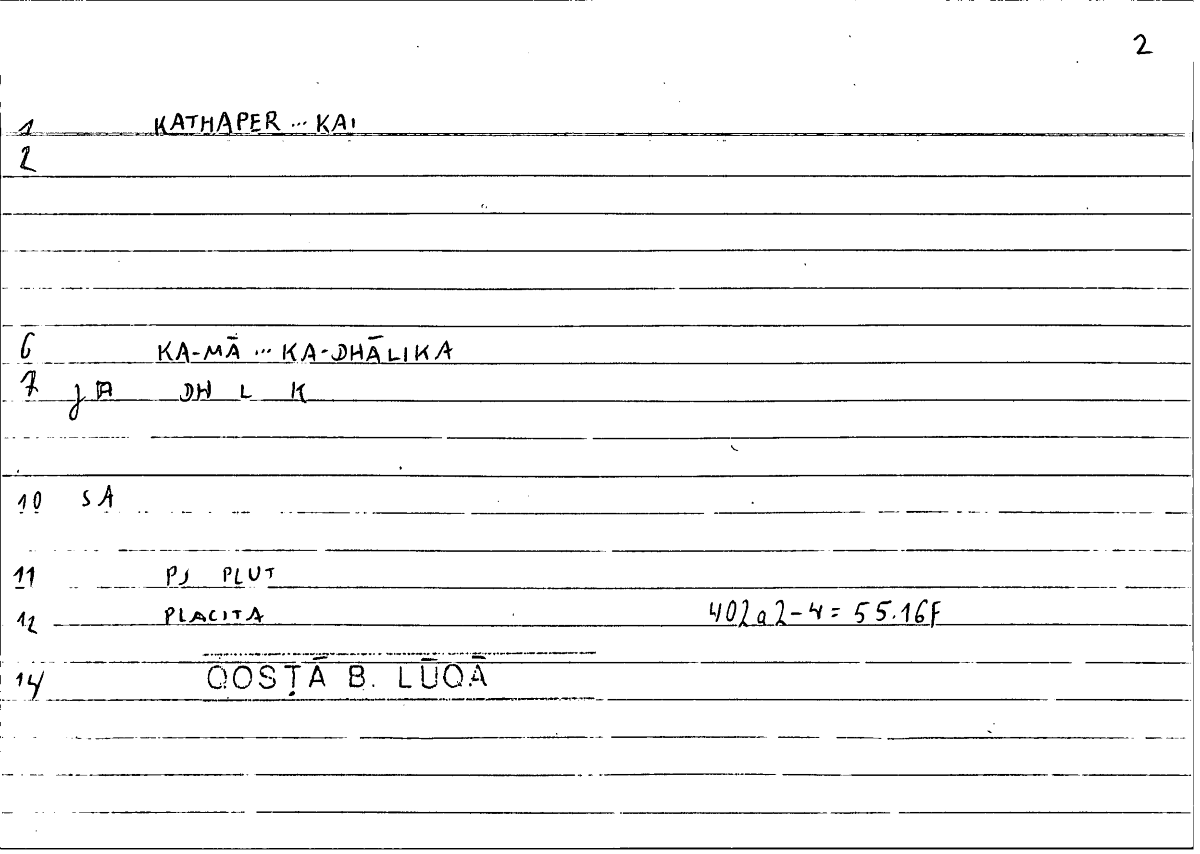 2
1 KATHAPER ... KAI
2
6 KA-MĀ ... KA-DHĀLIKA
7 DH L K
10 SA
11 PS PLUT
12 PLACITA 402a2-4 = 55.16f
14 QOSṬĀ B. LŪQĀ